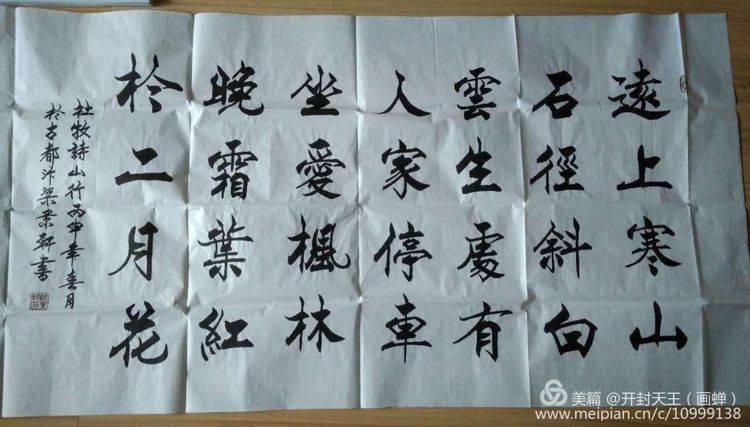 遠上寒山
石徑斜白
雲生處有
人家停車
坐愛楓林
晚霜葉紅
於二月花
杜牧詩山行丙申年春月
於古都汴梁業軒書
美篇 @开封天王（画蝉）
www.meipian.cn/c/10999138